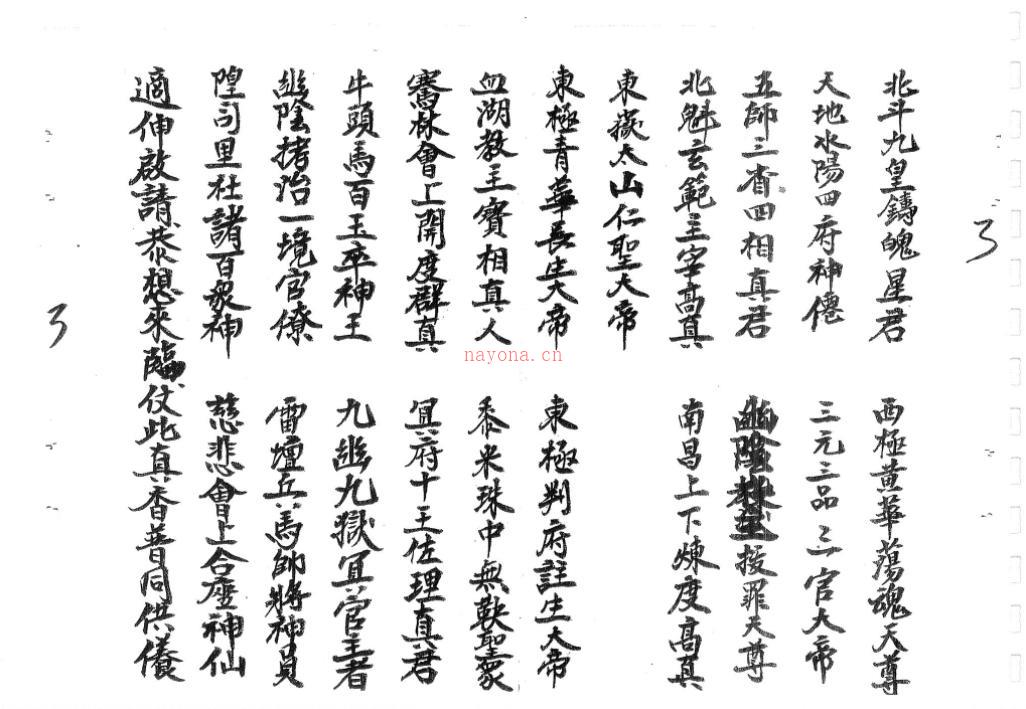 北斗九皇鑄魄星君 西極黃華蕩魂天尊
天地水陽四府神僊 三元三品三官大帝
五師三省四相真君 拔罪天尊
北魁玄範主宰高真 南昌上下煉度高真
東嶽太山仁聖大帝
東極青華長生大帝 東極判府註生大帝
血湖教主寶相真人 黍米珠中無鞅聖衆
騫林會上開度群真 冥府十王佐理真君
牛頭馬百玉卒神王 九幽九獄冥官主者
幽陰拷治一境官僚 雷壇兵馬帥將神員
隍司里社諸百衆神 慈悲會上合座神仙
適伸啟請恭想來臨仗此真香普同供養
3
3
nayona.cn